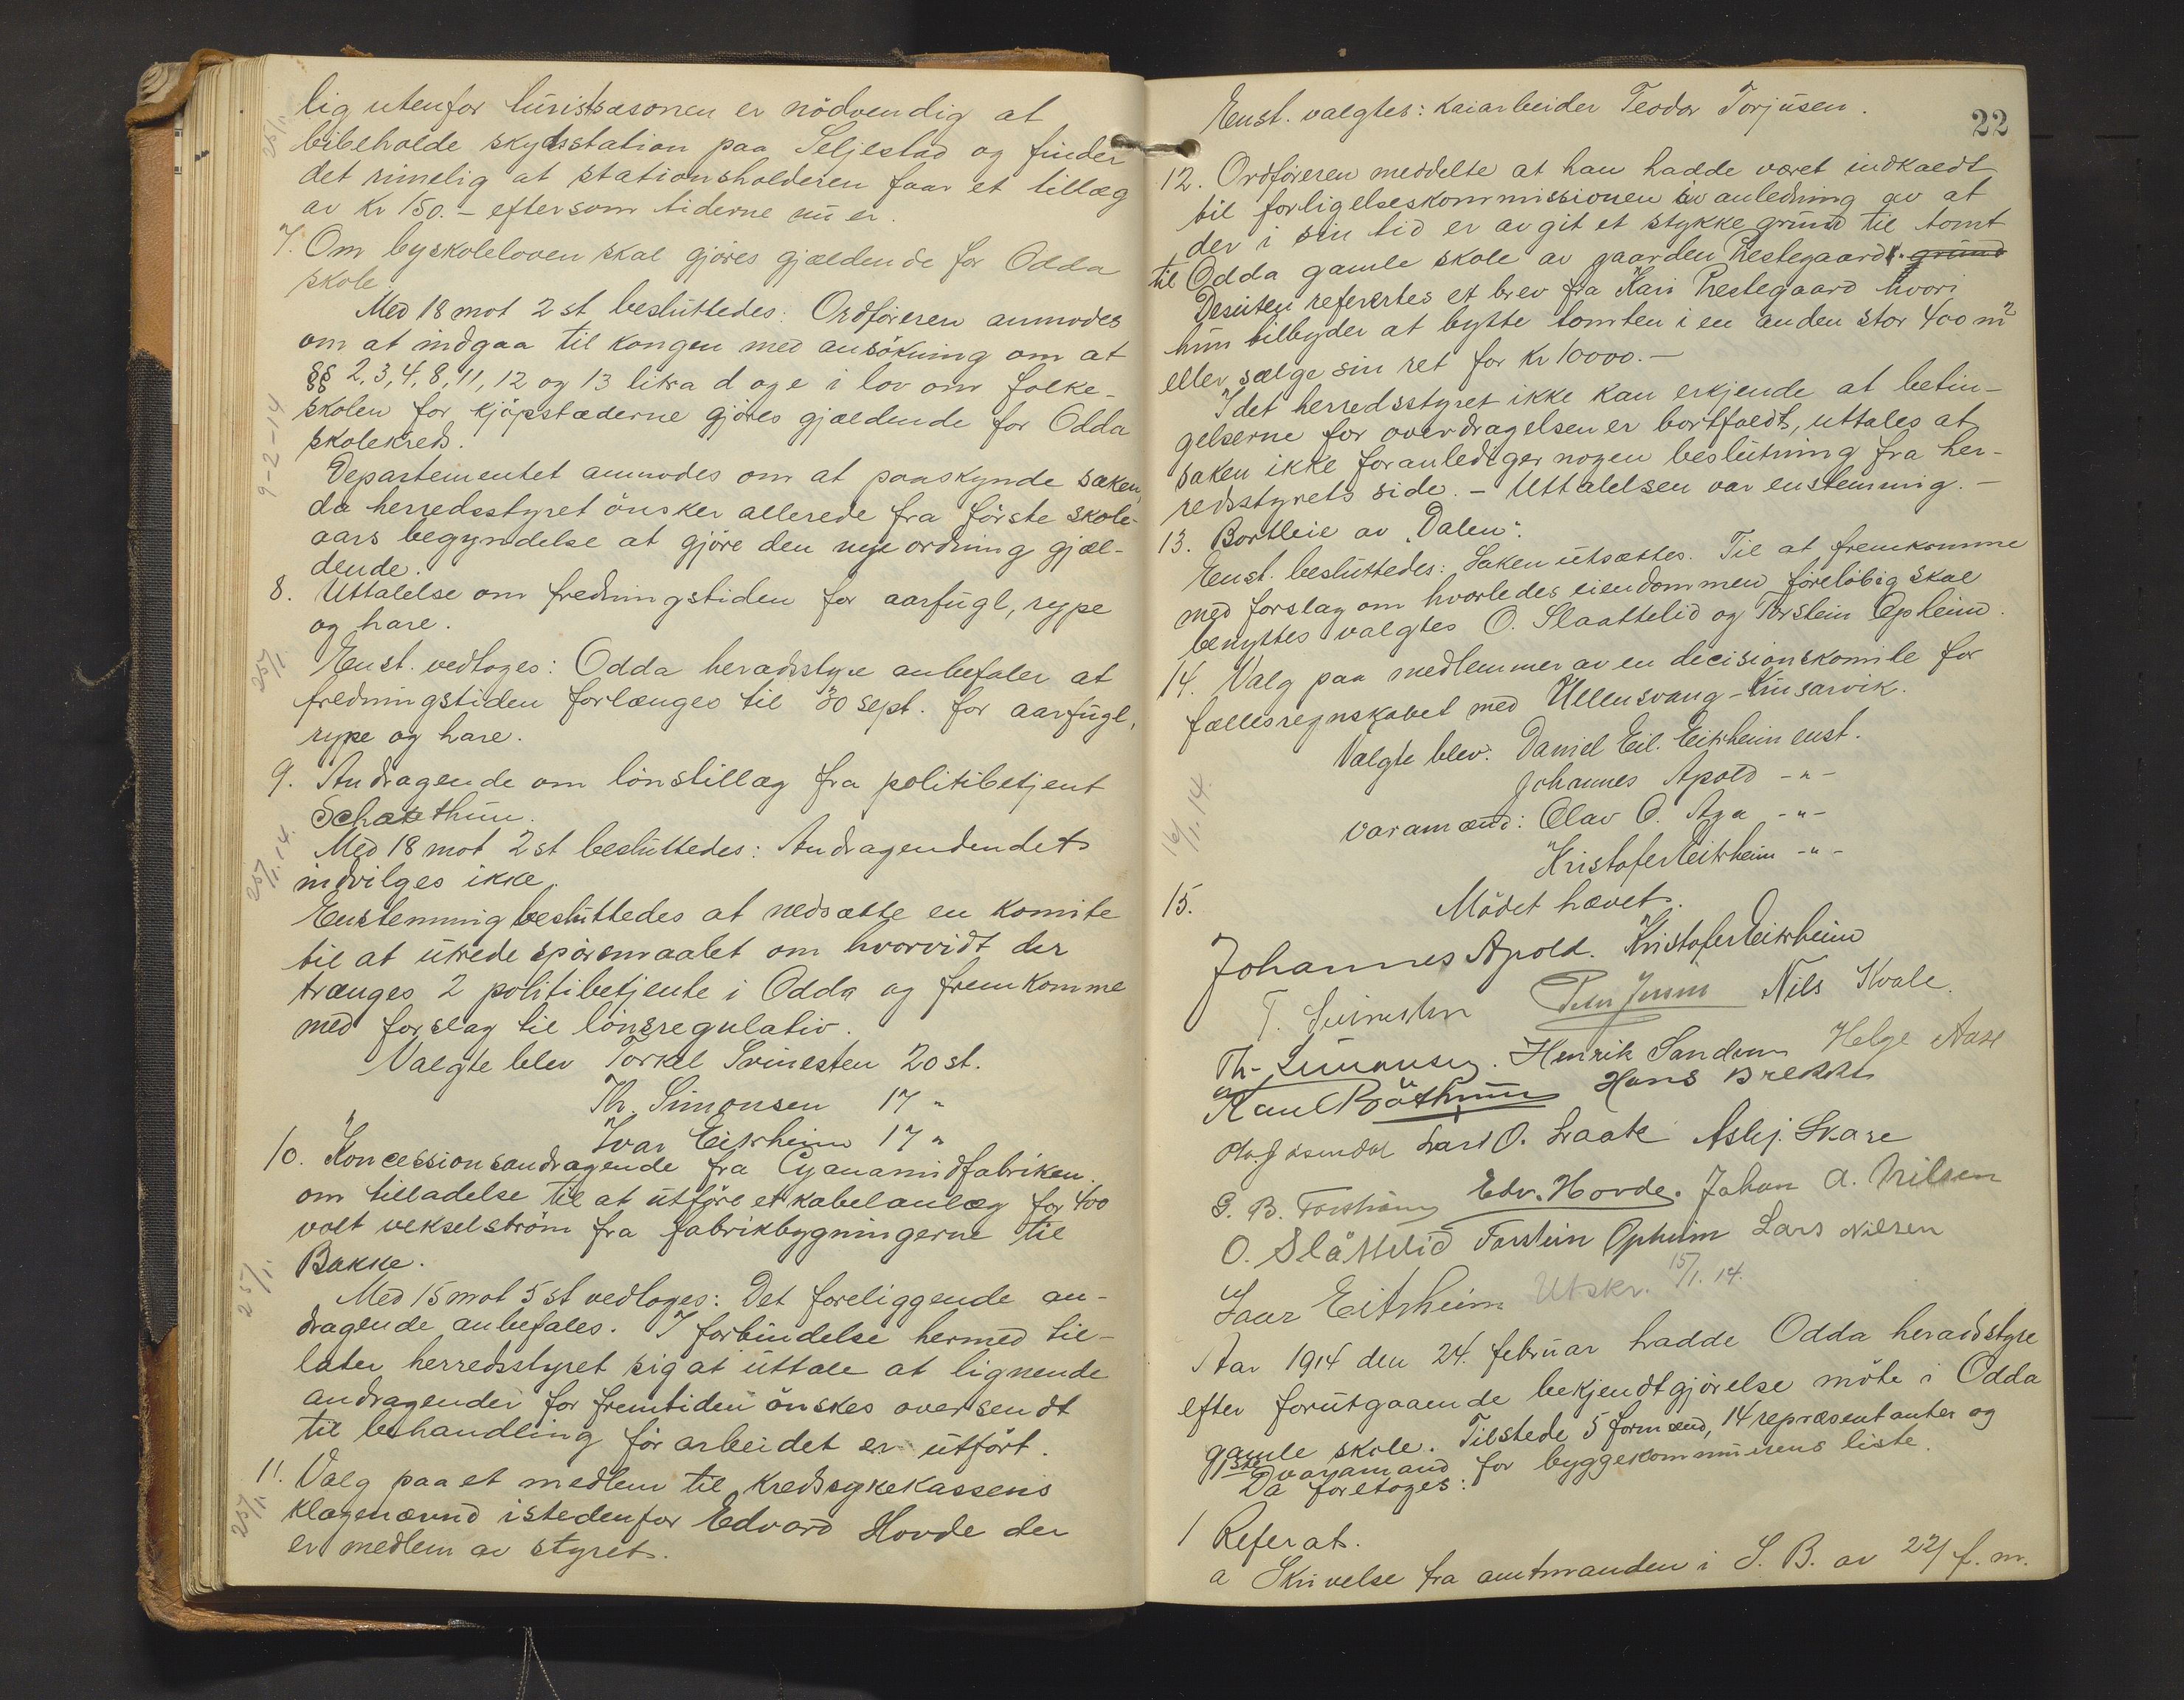 lig utenfor turistsæsonen er nödvendig at
bibeholde skydsstation paa Seljestad og finder
det rimelig at stationsholderen faar et tillæg
av Kr 150.- eftersom tiderne nu er.
7. Om byskoleloven skal gjöres gjældende for Odda
skole.
Med 18 mot 2 st besluttedes: Ordföreren anmodes
om at indgaa til kongen med ansökning om at
§§ 2, 3, 4, 8, 11, 12 og 13 litra d og e i lov om folke-
skolen for kjöpstæderne gjöres gjældende for Odda
skolekreds.
9-2-14
Departementet anmodes om at paaskynde saken,
da herredsstyret önsker allerede fra förste skole-
aars begyndelse at gjöre den nye ordning gjæl-
dende.
8. Uttalelse om fredningstiden for aarfugl, rype
og hare.
25/1.
Enst. vedtoges: Odda heradsstyre anbefaler at
fredningstiden forlænges til 30 sept. for aarfugl,
rype og hare.
9. Andragende om lönstillæg fra politibetjent
Schatethun.
25/1.14.
Med 18 mot 2 st besluttedes: Andragendendet
indvilges ikke.
Enstemmig besluttedes at nedsætte en komite
til at utrede spörsmaalet om hvorvidt der
trænges 2 politibetjente i Odda og fremkomme
med forslag til lönsregulativ.
Valgte blev Torkel Svinesten 20 st.
Th. Simonsen 17 "
Ivar Eitrheim 17 "
10. Koncessionsandragende fra Cyanamidfabriken
om tilladelse til at utföre et kabelanlæg for 400
volt vekselström fra fabrikbygningerne til
Bakke.
25/1.
Med 15 mot 5 st vedtoges: Det foreliggende an-
dragende anbefales. I forbindelse hermed til-
later herredsstyret sig at uttale at lignende
andragender for fremtiden önskes oversendt
til behandling för arbeidet er utfört.
11. Valg paa et medlem til kredssykekassens
25/1.
klagenævnd istedenfor Edvard Hovde der
er medlem av styret.
22
Enst. valgtes: Kaiarbeider Teodor Torjusen.
12. Ordföreren meddelte at han hadde været indkaldt
til forligelseskommissionen i anledning av at
der i sin tid er avgit et stykke grund til tomt
til Odda gamle skole av gaarden Prestegaard. grund
Desuten refertes et brev fra Kari Prestegaard hvori
hun tilbyder at bytte tomten i en anden stor 400 m²
eller sælge sin ret for Kr 10000.-
Idet herredsstyret ikke kan erkjende at betin-
gelserne for overdragelsen er bortfaldt, uttales at
saken ikke foranlediger nogen beslutning fra her-
redsstyrets side. - Uttalelsen var enstemmig. -
13. Bortleie av "Dalen".
Enst. besluttedes: Saken utsættes. Til at fremkomme
med forslag om hvorledes eiendommen foreløbig skal
benyttes valgtes O. Slaattelid og Torstein Opheim.
14. Valg paa medlemmer av en decisionskomite for
fællesregnskabet med Ullensvang-Kinsarvik.
Valgte blev: Daniel Eil. Eitrheim enst.
Johannes Apold -"-
16/1.14.
varamænd: Olav O. Aga -"-
Kristofer Eitrheim -"-
15. Mödet hævet.
Johannes Apold. Kristofer Eitrheim
T. Svinesten Peter Jensen Nils Kvale.
Th. Simonsen. Henrik Sandven Helge Aase
Karl Böthun Hans Brekke
Lars O. Laate Asbj. Skare
G. B. Edv. Hovde. Johan A. Nilsen
O. Slåttelid Torstein Opheim Lars Nilsen
Ivar Eitrheim Utskr. 15/1.14.
Aar 1914 den 24. februar hadde Odda heradsstyre
efter forutgaaende bekjendtgjörelse möte i Odda
gamle skole. Tilstede 5 formænd, 14 repræsentanter og
1ste varamand for byggekommunens liste.
Da foretoges:
1 Referat.
a Skrivelse fra amtmanden i S. B. av 22/ f. m.